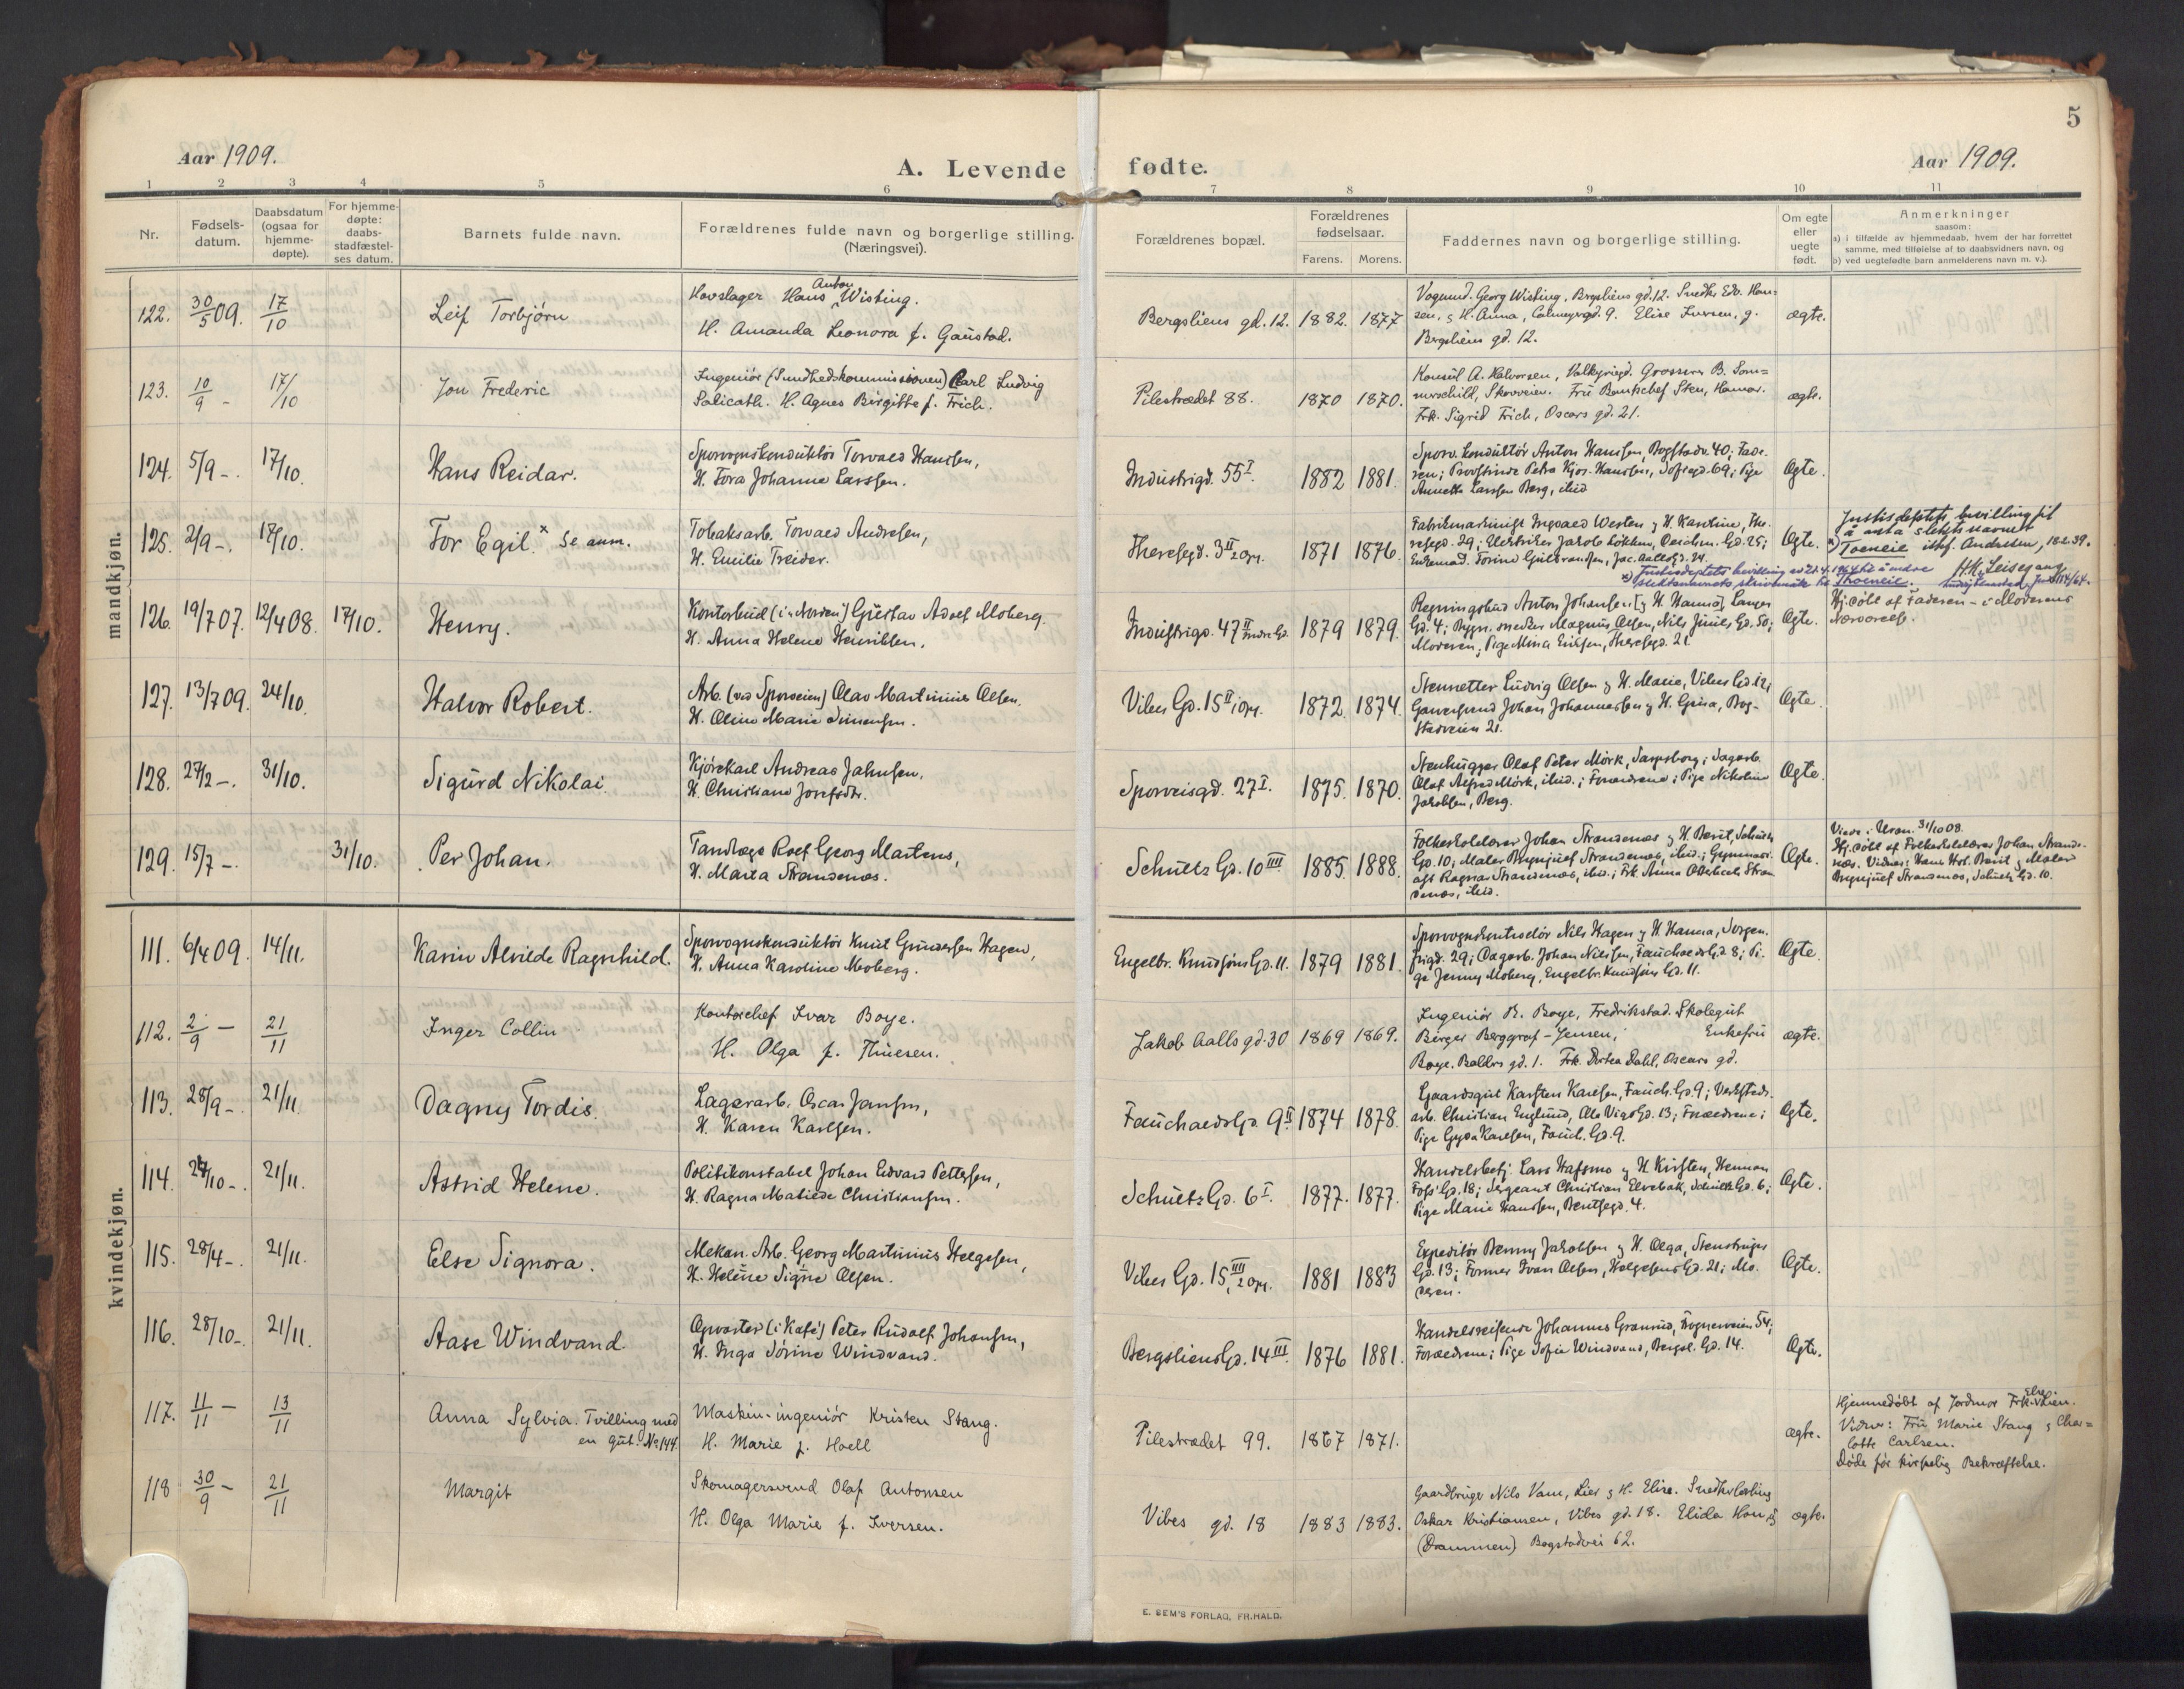 5
Aar 1909.
A. Levende fødte.
Aar 1909.
1 2 3 4 5 6 7 8 9 10 11
Nr.
Fødsels-
datum.
Daabsdatum
(ogsaa for
hjemme-
døpte).
For hjemme-
døpte:
daabs-
stadfæstel-
ses datum.
Barnets fulde navn.
Forældrenes fulde navn og borgerlige stilling.
(Næringsvei).
Forældrenes bopæl.
Forældrenes
fødselsaar.
Farens. Morens.
Faddernes navn og borgerlige stilling.
Om egte
eller
uegte
født.
Anmerkninger
saasom:
a) i tilfælde av hjemmedaab, hvem der har forrettet
samme, med tilføielse af to daabsvidners navn, og
b) ved uegtefødte barn anmelderens navn m. v.).
mandkjøn.
122. 30/5 09. 17/10 Leif Torbjørn
Hovslager Hans Anton Wisting.
H. Amanda Leonora f. Gaustad.
Bergsliens gd. 12. 1882. 1877
Vognmd. Georg Wisting, Bergsliens gd. 12. Snedk. Edv. Han-
sen, & H. Anna, Colmeyergd. 9. Elise Iversen, g.
Bergsliens gd. 12.
ægte.
123. 10/9 - 17/10 Jon Frederic
Ingeniør (Sundhedskommissionen) Carl Ludvig
Salicath. H. Agnes Birgitte f. Frich.
Pilestrædet 88. 1870 1870.
Konsul A. Halvorsen, Valkyriegd. Grosserer B. Som-
merschild, Skovveien. Frü Bankchef Sten, Hamar.
Frk. Sigrid Frich, Oscars gd. 21.
ægte.
124. 5/9 -. 17/10. Hans Reidar.
Sporvognskonduktör Torvald Hansen,
H. Tora Johanne Larssen.
Industrigd. 55 I. 1882 1881.
Sporv. konduktör Anton Hanssen, Bogstadv. 40; Fade-
ren; Provstinde Petra Kjos-Hanssen, Sofiegd. 69; Pige
Annette Larssen Berg, ibid
Ægte.
125. 2/9 -. 17/10. Tor Egil. × Se anm.
Tobaksarb. Torvald Andresen,
H. Emilie Treider.
Theresegd. 3 II 2 opg. 1871 1876.
Fabrikmaskinist Ingvald Westen & H. Karoline, The-
resegd. 29; Elektriker Jakob Løkken, Deichm. Gd. 25;
Enkemad. Torine Gulbrandsen, Jac. Aalls Gd. 24.
Ægte.
Justisdeptets bevilling til
å anta slektsnavnet
×) Toeneie istf. Andresen, 18.2.39.
H.K. Leisegang
×) Justisdeptets bevilling av 21.4.1964 til å endre
slektsnavnets skrivemåte til Thoeneie.
126. 19/7 07. 12/4 08. 17/10. Henry.
Kontorbud (i „Norden") Gustav Adolf Moberg.
H. Anna Helene Henriksen.
Industrigd. 47 II 1879 1879.
Regningsbud Anton Johansen [& H. Hanna], Langes
Gd. 4; Bygn. snedker Magnus Olsen, Nils Juels Gd. 50;
Moderen; Pige Mina Eriksen, Theresegd. 21.
Ægte.
Hj.döbt af Faderen - i Moderens
Nærværelse.
127. 13/7 09. 24/10. Halvor Robert.
Arb. (ved Sporveien) Olav Martinius Olsen,
H. Oline Marie Simensen.
Vibes Gd. 15 II i opg. 1872. 1874.
Stensetter Ludvig Olsen & H. Marie, Vibes Gd. 12;
Garversvend Johan Johannessen & H. Gina, Bog-
stadveien 21.
Ægte.
128. 27/2 -. 31/10. Sigurd Nikolai.
Kjörekarl Andreas Jahnsen,
H. Christiane Josefsdtr.
Sporveisgd. 27 I. 1875. 1870.
Stenhugger Olaf Peter Mörk, Sarpsborg; Sagarb.
Olaf Alfred Mörk, ibid.; Forældrene; Pige Nikoline
Jakobsen, Berg.
Ægte.
129. 15/7 -. 31/10. Per Johan.
Tandlæge Rolf Georg Martens,
H. Marta Strandenæs.
Schultz Gd. 10 IIII. 1885. 1888.
Folkeskolelærer Johan Strandenæs & H. Berit, Schultz
Gd. 10; Maler Brynjulf Strandenæs, ibid.; Gymnasi-
ast Ragnar Strandenæs, ibid.; Frk. Anna Stran-
denæs, ibid.
Ægte.
31/10 08.
Hj.döbt af Folkeskolelærer Johan Strande-
næs. Vidner: Hans Hst. Berit & Maler
Brynjulf Strandenæs, Schultz Gd. 10.
kvindekjøn.
111. 6/4 09. 14/11. Karin Alvilde Ragnhild.
Sporvognskonduktör Knut Gundersen Hagen,
H. Anna Karoline Moberg.
Engelbr. Knudsöns Gd. 11. 1879 1881.
Sporvognskontrollör Nils Hagen & H. Hanna, Jörgen-
frigd. 29; Dagarb. Johan Nilssen, Fauchalds Gd. 8; Pi-
ge Jenny Moberg, Engelbr. Knudsöns Gd. 11.
Ægte.
112. 2/9 - 21/11 Inger Collin
Kontorchef Ivar Boye.
H. Olga f. Thuesen.
Jakob Aalls gd. 30 1869 1869.
Ingeniör Th. Boye, Fredrikstad. Skolegut
Birger Berggraf-Jensen; Enkefrü
Boye, Balders gd. 1. Frk. Dortea Dahl, Oscars gd.
ægte.
113. 28/9 -. 21/11. Dagny Tordis.
Lagerarb. Oscar Jansen,
H. Karen Karlsen.
Fauchalds Gd. 9 II 1874 1878.
Gaardsgut Karsten Karlsen, Fauch. Gd. 9; Verksteds-
arb. Christian Englund, Ole Vigs Gd. 13; Forældrene;
Pige Gyda Karlsen, Fauch. Gd. 9.
Ægte.
114. 24/10 -. 21/11. Astrid Helene.
Politikonstabel Johan Edvard Pettersen,
H. Ragna Matilde Christiansen.
Schultz Gd. 6 I. 1877. 1877.
Handelsbetj. Lars Hafsmo & H. Kirsten, Herman
Foss' Gd. 18; Sergeant Christian Elvebak, Schultz Gd. 6;
Pige Marie Hanssen, Bentsegd. 4.
Ægte.
115. 28/4 -. 21/11. Else Signora.
Mekan. Arb. Georg Martinius Helgesen,
H. Helene Signe Olsen.
Vibes Gd. 15 IIII, 2 opg. 1881 1883
Expeditör Benny Jakobsen & H. Olga, Stenstrups
Gd. 13; Former Ivan Olsen, Helgesens Gd. 21; Mo-
deren.
Ægte.
116. 28/10 -. 21/11. Aase Windvand.
Opvarter (i Kafé) Peter Rudolf Johansen,
H. Inga Jörine Windvand.
Bergsliens Gd. 14 III. 1876 1881.
Handelsreisende Johannes Granrud, Vognerveien 54;
Forældrene; Pige Sofie Windvand, Bergsl. Gd. 14.
Ægte.
117. 11/11 - 13/11 Anna Sylvia. Tvilling med
en gut. No 144.
Maskin-ingeniör Kristen Stang.
H. Marie f. Hoell
Pilestrædet 99. 1867 1871.
ægte.
Hjemmedöbt af Jordmor Frk. Else Lien.
Vidner: Frü Marie Stang & Char-
lotte Carlsen.
Döde för kirkelig Bekræftelse.
118 30/9 - 21/11 Margit
Skomagersvend Olaf Antonsen
H. Olga Marie f. Iversen.
Vibes gd. 18 1883 1883.
Gaardbruger Nils Vam, Lier & H. Elise. Snedkerlærling
Oskar Kristiansen, Vibes gd. 18. Elida
(Drammen) Bogstadvei 62.
ægte.
E. SEM'S FORLAG, FR.HALD.